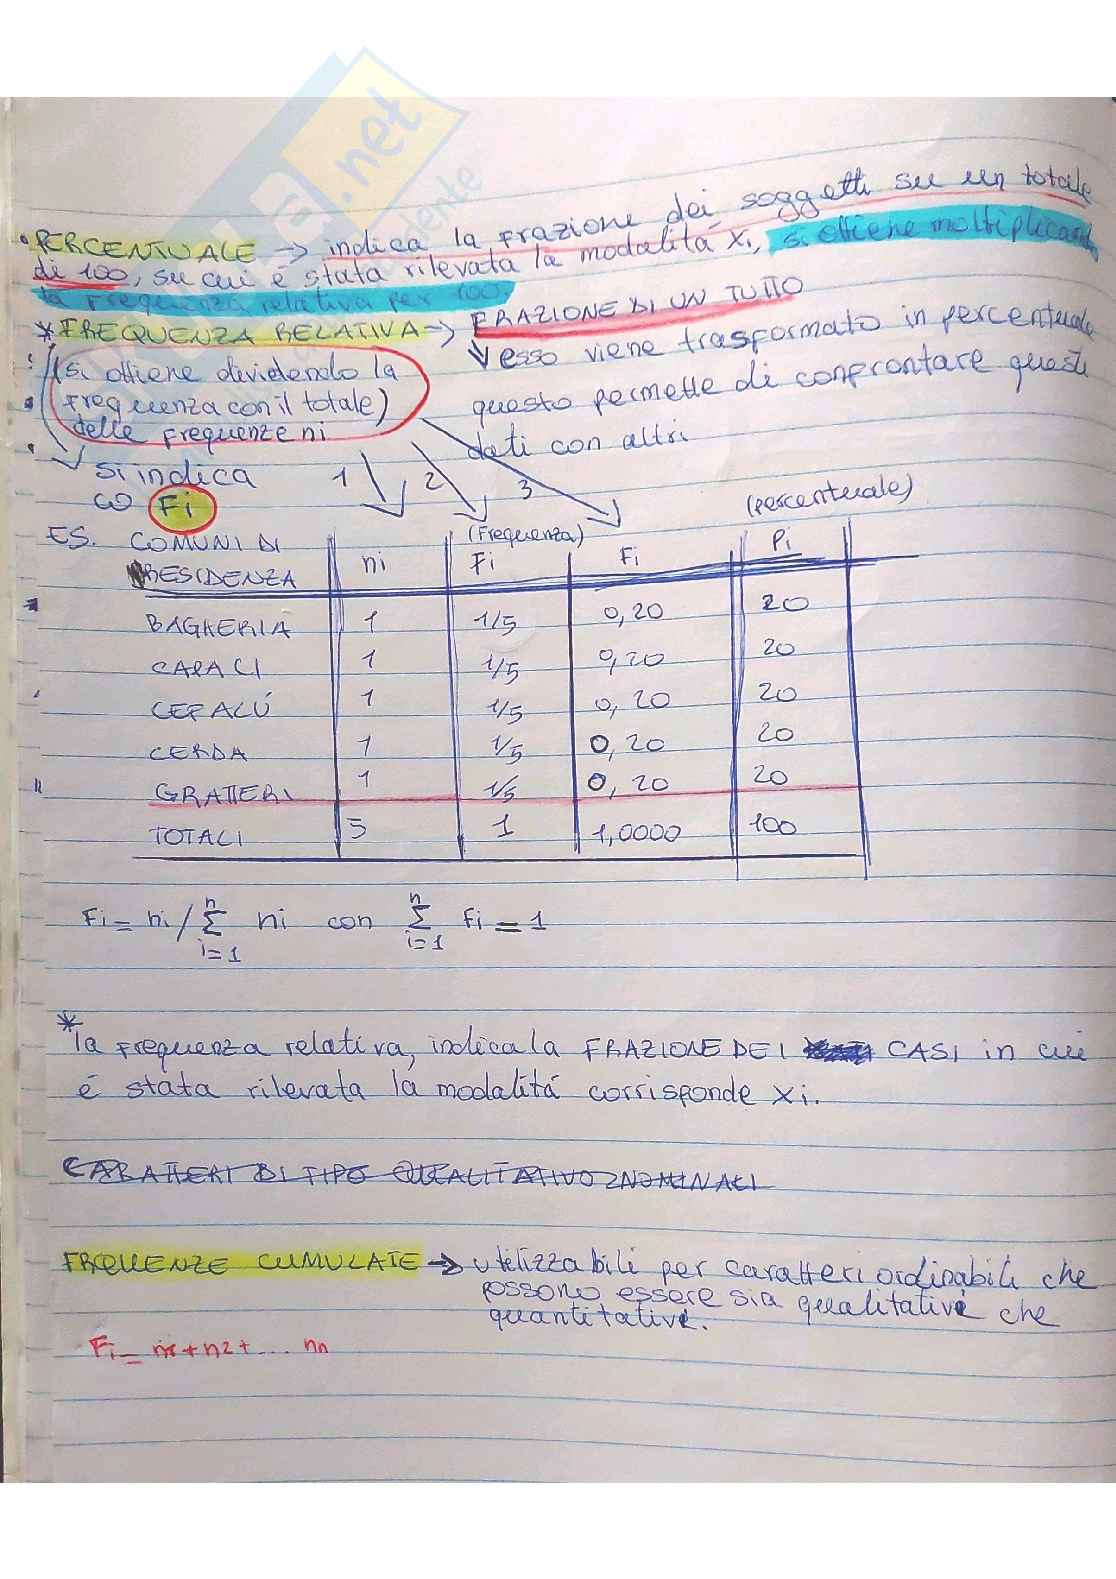 .net
dente
• PERCENTUALE → indica la frazione dei soggetti su un totale
di 100, su cui é stata rilevata la modalitá xi, si ottiene moltiplicando
la frequenza relativa per 100
* FREQUENZA RELATIVA → FRAZIONE DI UN TUTTO
esso viene trasformato in percentuale
questo permette di confrontare questi
dati con altri
(si ottiene dividendo la
frequenza con il totale)
delle frequenze ni
si indica
co Fi
1 2 3
ES. COMUNI DI RESIDENZA | ni | (Frequenza) Fi | Fi | (percentuale) Pi
BAGHERIA 1 1/5 0,20 20
CAPACI 1 1/5 0,20 20
CEFALÚ 1 1/5 0,20 20
CERDA 1 1/5 0,20 20
GRATTERI 1 1/5 0,20 20
TOTALI 5 1 1,0000 100
Fi = ni / n Σ i=1 ni con n Σ i=1 Fi = 1
* la frequenza relativa, indica la FRAZIONE DEI CASI in cui
é stata rilevata la modalitá corrisponde xi.
CARATTERI DI TIPO QUALITATIVO NOMINALI
FREQUENZE CUMULATE → utilizzabili per caratteri ordinabili che
possono essere sia qualitative che
quantitative.
Fi = n1 + n2 + ... nn